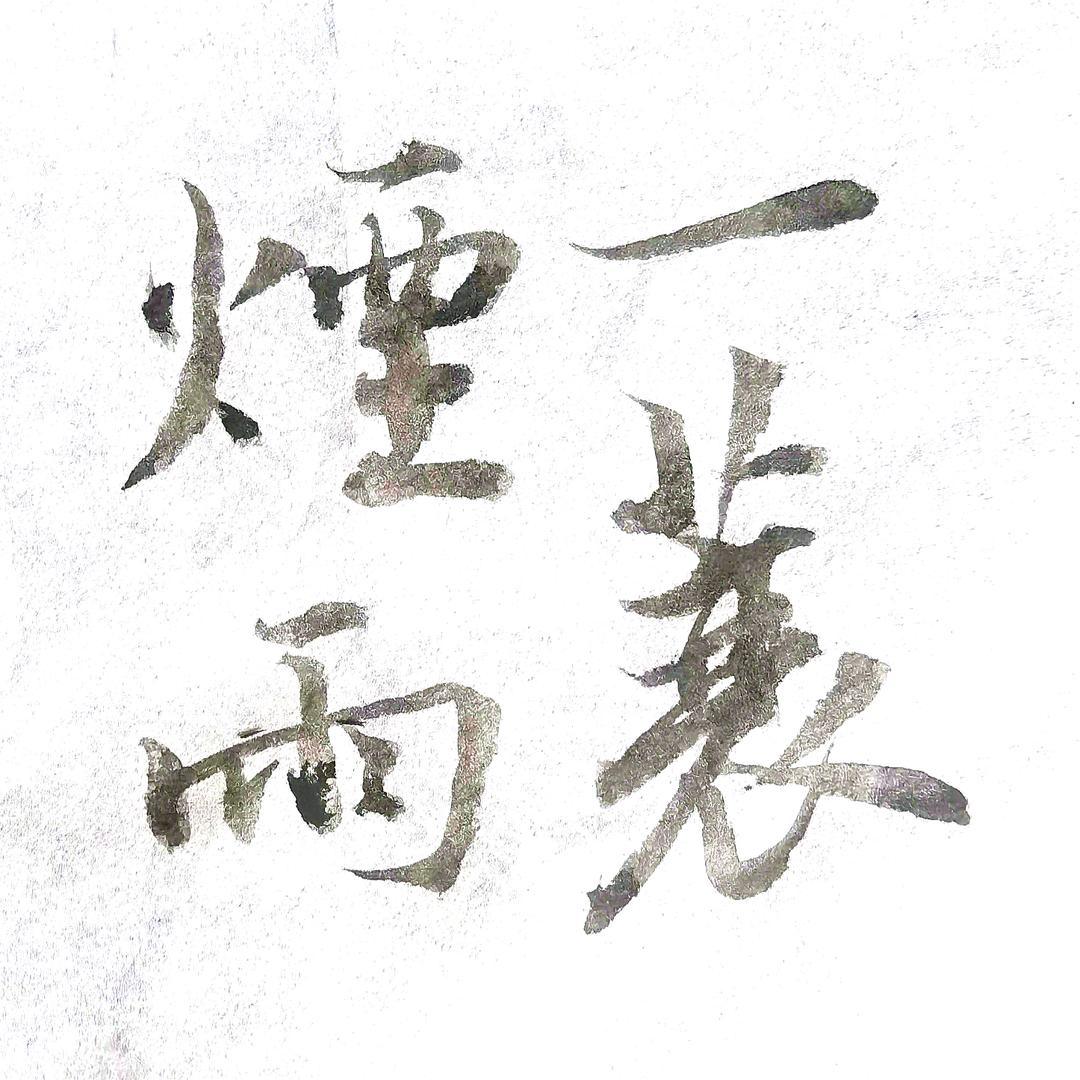 一蓑
煙雨